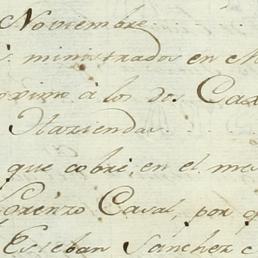 Noviembre
ministrados en
oximo à los dos Ca
Haziendas
que cobri, en el me
Lorenzo Casal, por
Esteban Sanchez